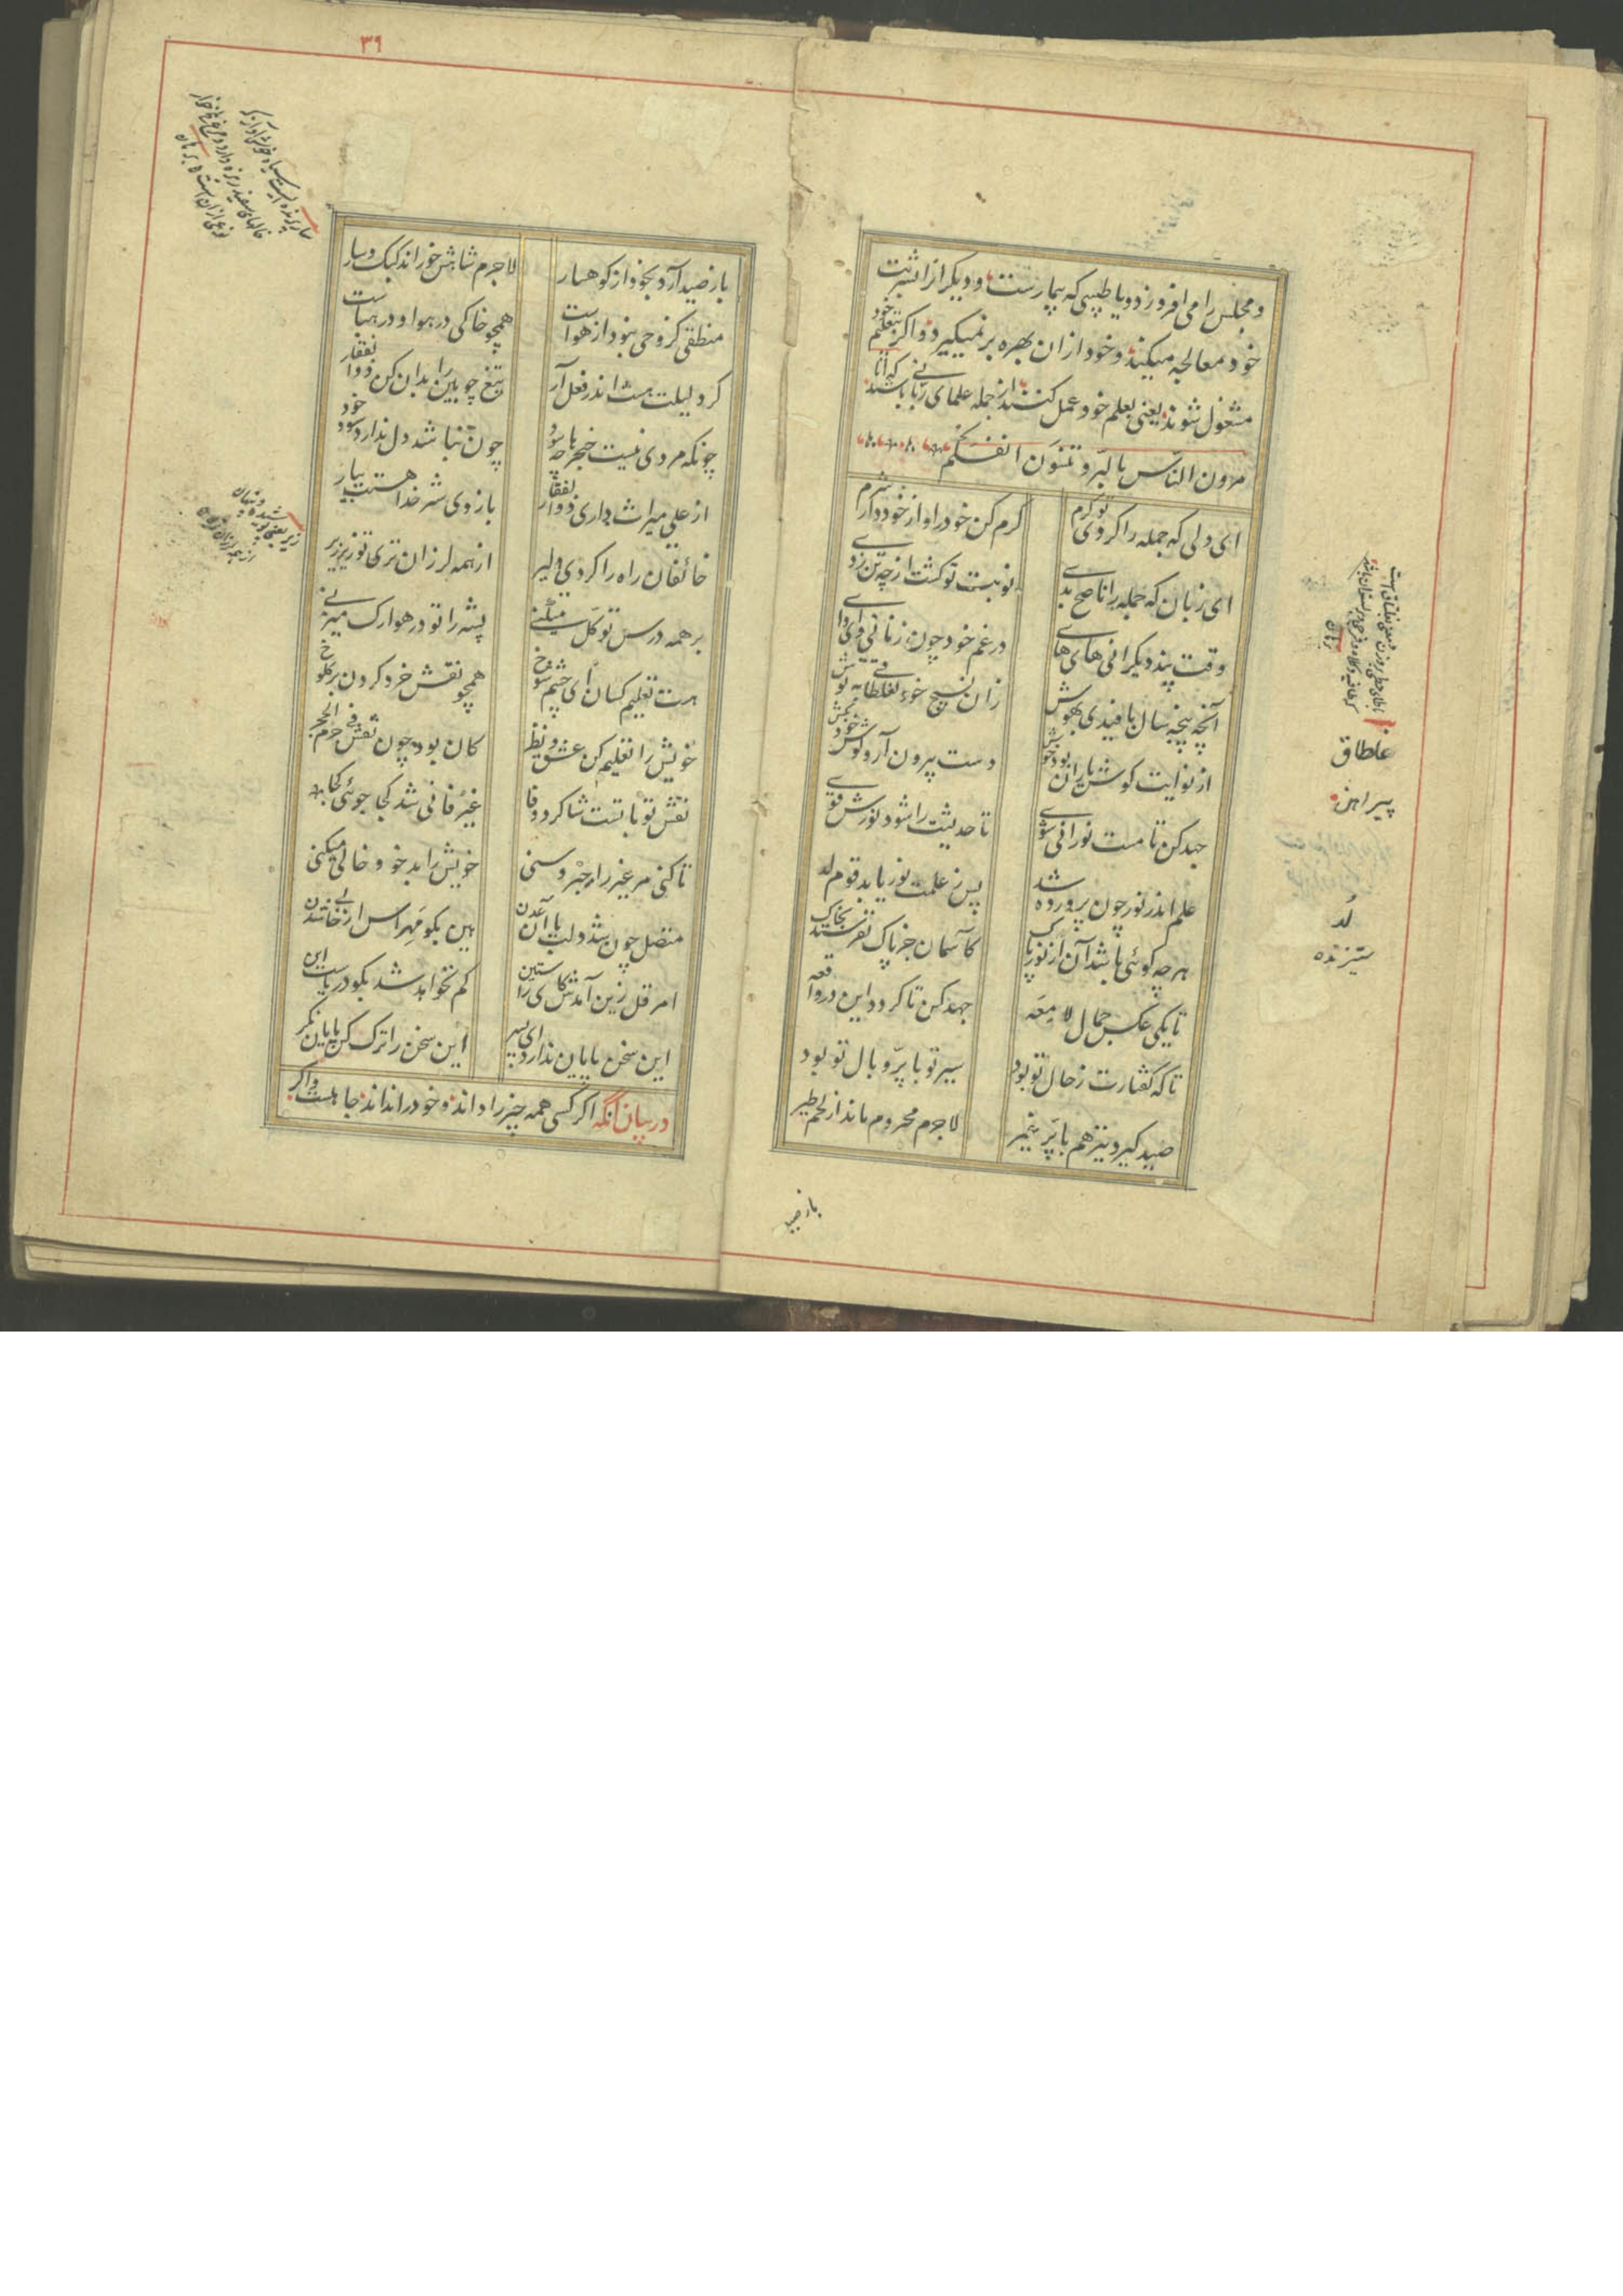 و مجلس را می افروزد و یا طبیبی که بیمارست و دیگر از اشربت
خود معالجه میکند و خود از ان بهره بر نمیگیرد و اگر بتعلیم خود
مشغول شوند یعنی بعلم خود عمل کنند از جمله علمای ربانی باشند که اتا
مرون الناس بالبر و تنسون انفسکم
ای دلی که جمله را کردی تو گرم
گرم کن خود را و از خود دار شرم
ای زبان که جمله را ناصح بدی
نوبت تو گشت از چه تن زدی
وقت پند دیگرانی های های
در غم خود چون زنانی وای وای
آنچه پنجه سال بافیدی بهوش
زان نسیج خود بغلطاقی بپوش
از نوایت گوش یاران بود خوش
دست بیرون آر و گوش خود بکش
جهد کن تا مست نورانی شوی
تا حدیثت را شود نورش قوی
علم اندر نور چون پرورده شد
پس ز علمت نور یابد قوم لد
هر چه گوئی باشد آن از نور پاک
کآسمان جز پاک نفرستد بخاک
تا یکی عکس جمال لامعه
جهد کن تا گردد این در واقعه
تا که گفتارت ز حال تو بود
سیر تو با پر و بال تو بود
صید گیرد نیز هم با پر غیر
لاجرم محروم ماند از لحم طیر
باز صید
غلطاق
پیراهن
لُد
ستیزنده
۳۹
باز صید آرد بخود از کوهسار
لاجرم شاهش خوراند کبک و سار
منطقی کز وحی نبود از هواست
همچو خاکی در هوا و در هباست
گر دلیلت هست اندر فعل آر
تیغ چوبین را بدان کن ذوالفقار
چونکه مردی نیست خنجرها چه سود
چون نباشد دل ندارد سود خود
از علی میراث داری ذوالفقار
بازوی شیر خدا هستت بیار
خائفان راه را کردی دلیر
از همه لرزان تری تو زیر زیر
بر همه درس توکل میکنی
پشه را تو در هوا رگ میزنی
هست تعلیم کسان ای چشم شوخ
همچو نقش خرد کردن بر کلوخ
خویش را تعلیم کن عشق و نظر
کان بود چون نقش فی جرم الحجر
نفس تو با تست شاگرد وفا
غیر فانی شد کجا جوئی کجا
تا کنی مر غیر را حبر و سنی
خویش را بد خو و خالی میکنی
متصل چون شد دلت با آن عدن
هین بگو مهراس از خالی شدن
امر قل زین آمدش کای راستین
کم نخواهد شد بگو دریاست این
این سخن پایان ندارد ای پسر
این سخن را ترک کن پایان نگر
در بیان آنکه اگر کسی همه چیز را داند و خود را نداند جاهلست و اگر